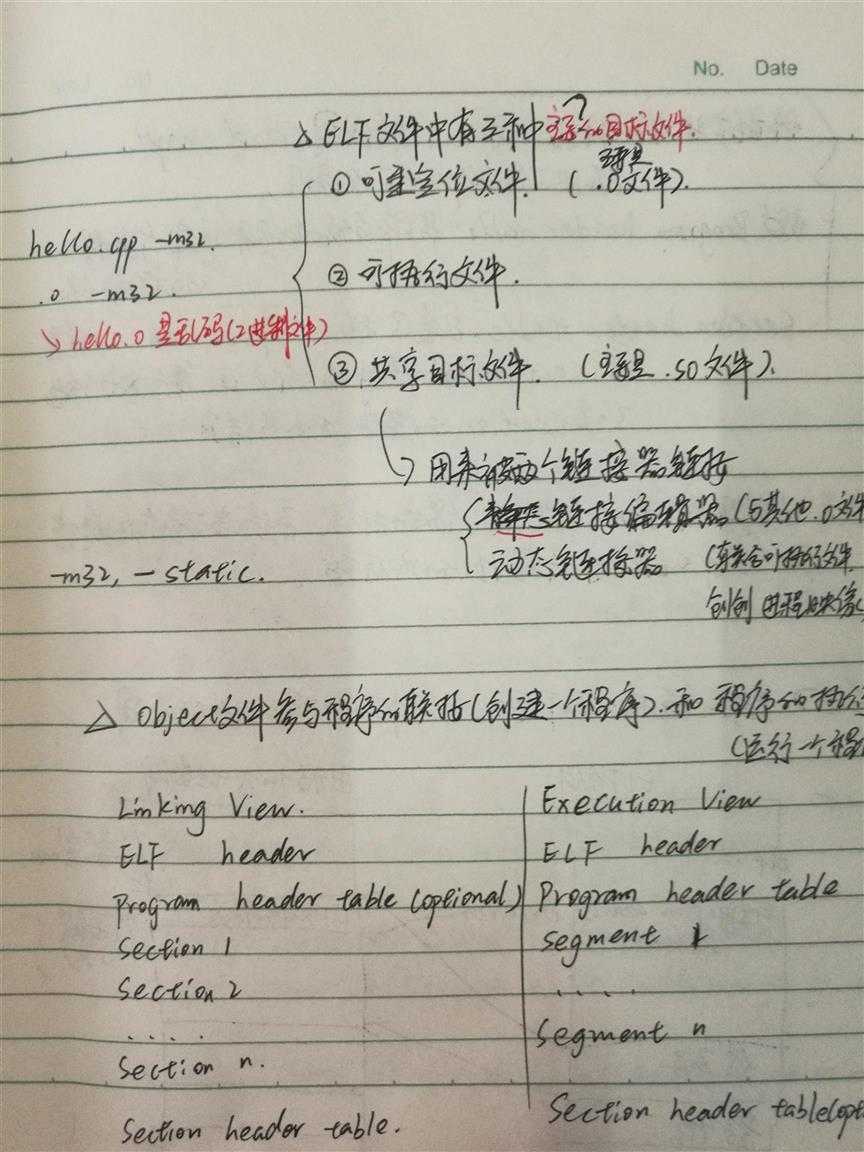 No. Date
△ ELF文件中有三种主要的目标文件.
① 可重定位文件. (主要是.o文件).
hello.cpp -m32.
.o -m32.
② 可执行文件.
↘ hello.o 是乱码(2进制文件)
③ 共享目标文件. (主要是 .so文件).
↳ 用来被两个链接器链接
静态链接编辑器(与其他.o文件
动态链接器 (联合可执行文件,
-m32, -static.
创创进程映像
△ Object文件参与程序的联接(创建一个程序).和 程序的执行
(运行一个程
Linking View. Execution View
ELF header ELF header
Program header table (optional) Program header table
Section 1 Segment 1
Section 2 .....
..... Segment n
Section n.
Section header table. Section header table(opt